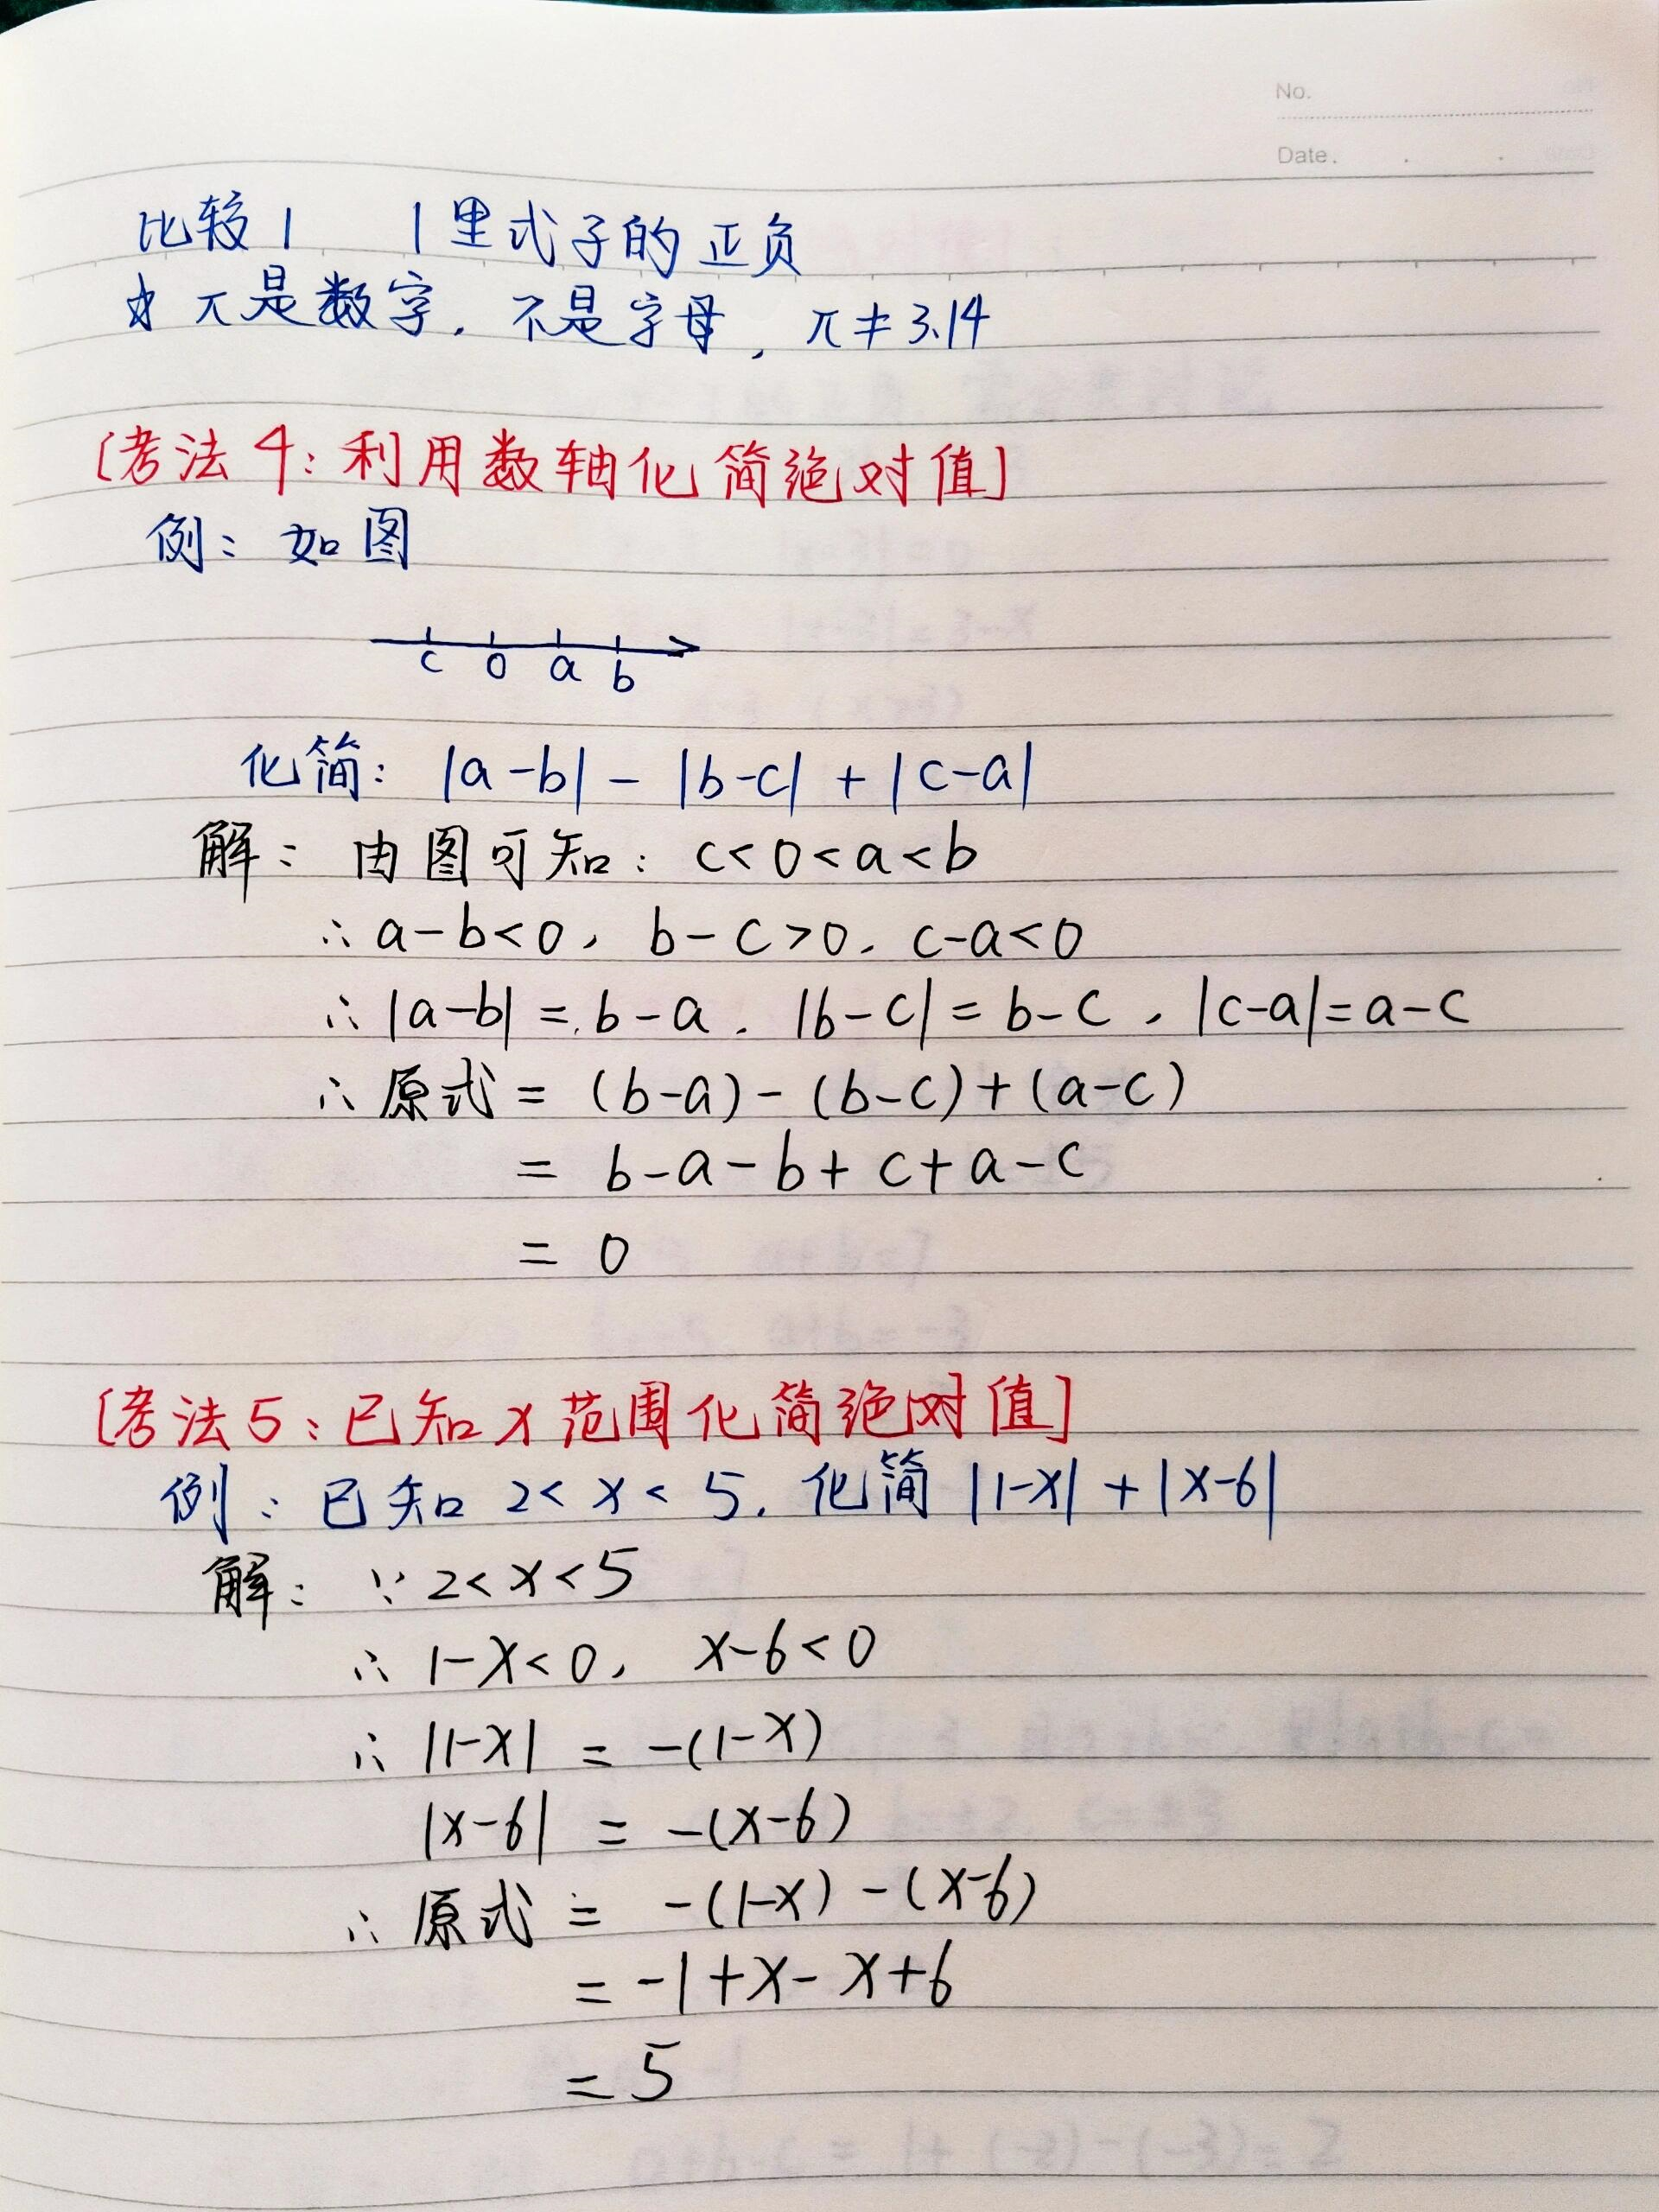 No.
Date. . .
比较|  |里式子的正负
☆ π是数字，不是字母，π≠3.14
[考法4：利用数轴化简绝对值]
例：如图
c 0 a b
化简：|a-b|-|b-c|+|c-a|
解：由图可知：c<0<a<b
∴a-b<0，b-c>0，c-a<0
∴|a-b|=b-a，|b-c|=b-c，|c-a|=a-c
∴原式=(b-a)-(b-c)+(a-c)
=b-a-b+c+a-c
=0
[考法5：已知x范围化简绝对值]
例：已知2<x<5，化简|1-x|+|x-6|
解：∵2<x<5
∴1-x<0，x-6<0
∴|1-x|=-(1-x)
|x-6|=-(x-6)
∴原式=-(1-x)-(x-6)
=-1+x-x+6
=5